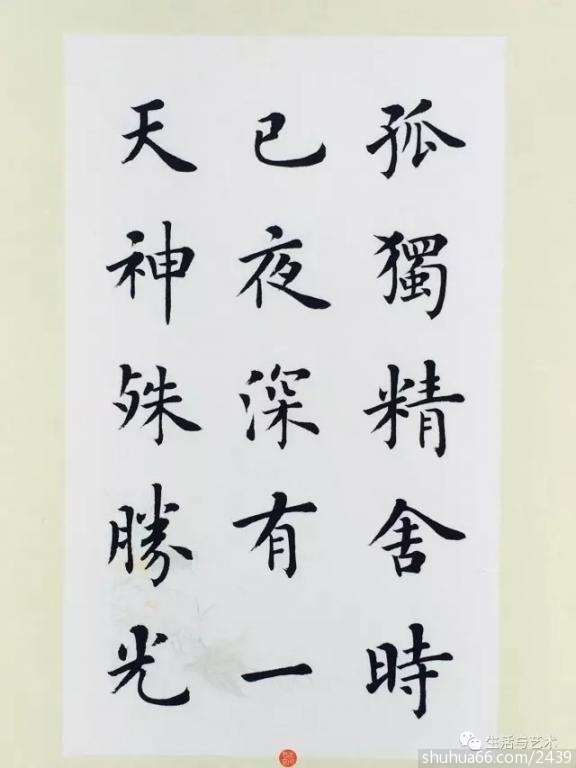 孤獨精舍時
已夜深有一
天神殊勝光
生活与艺术
shuhua66.com/2439